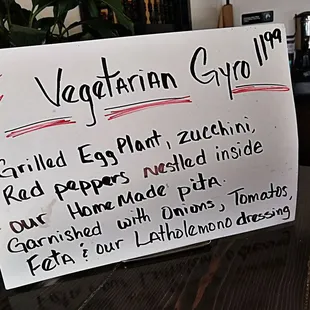 Vegetarian Gyro 11.99
Grilled EggPlant, zucchini,
Red peppers nestled inside
our HomeMade pita.
Garnished with Onions, Tomatos,
Feta & our Latholemono dressing